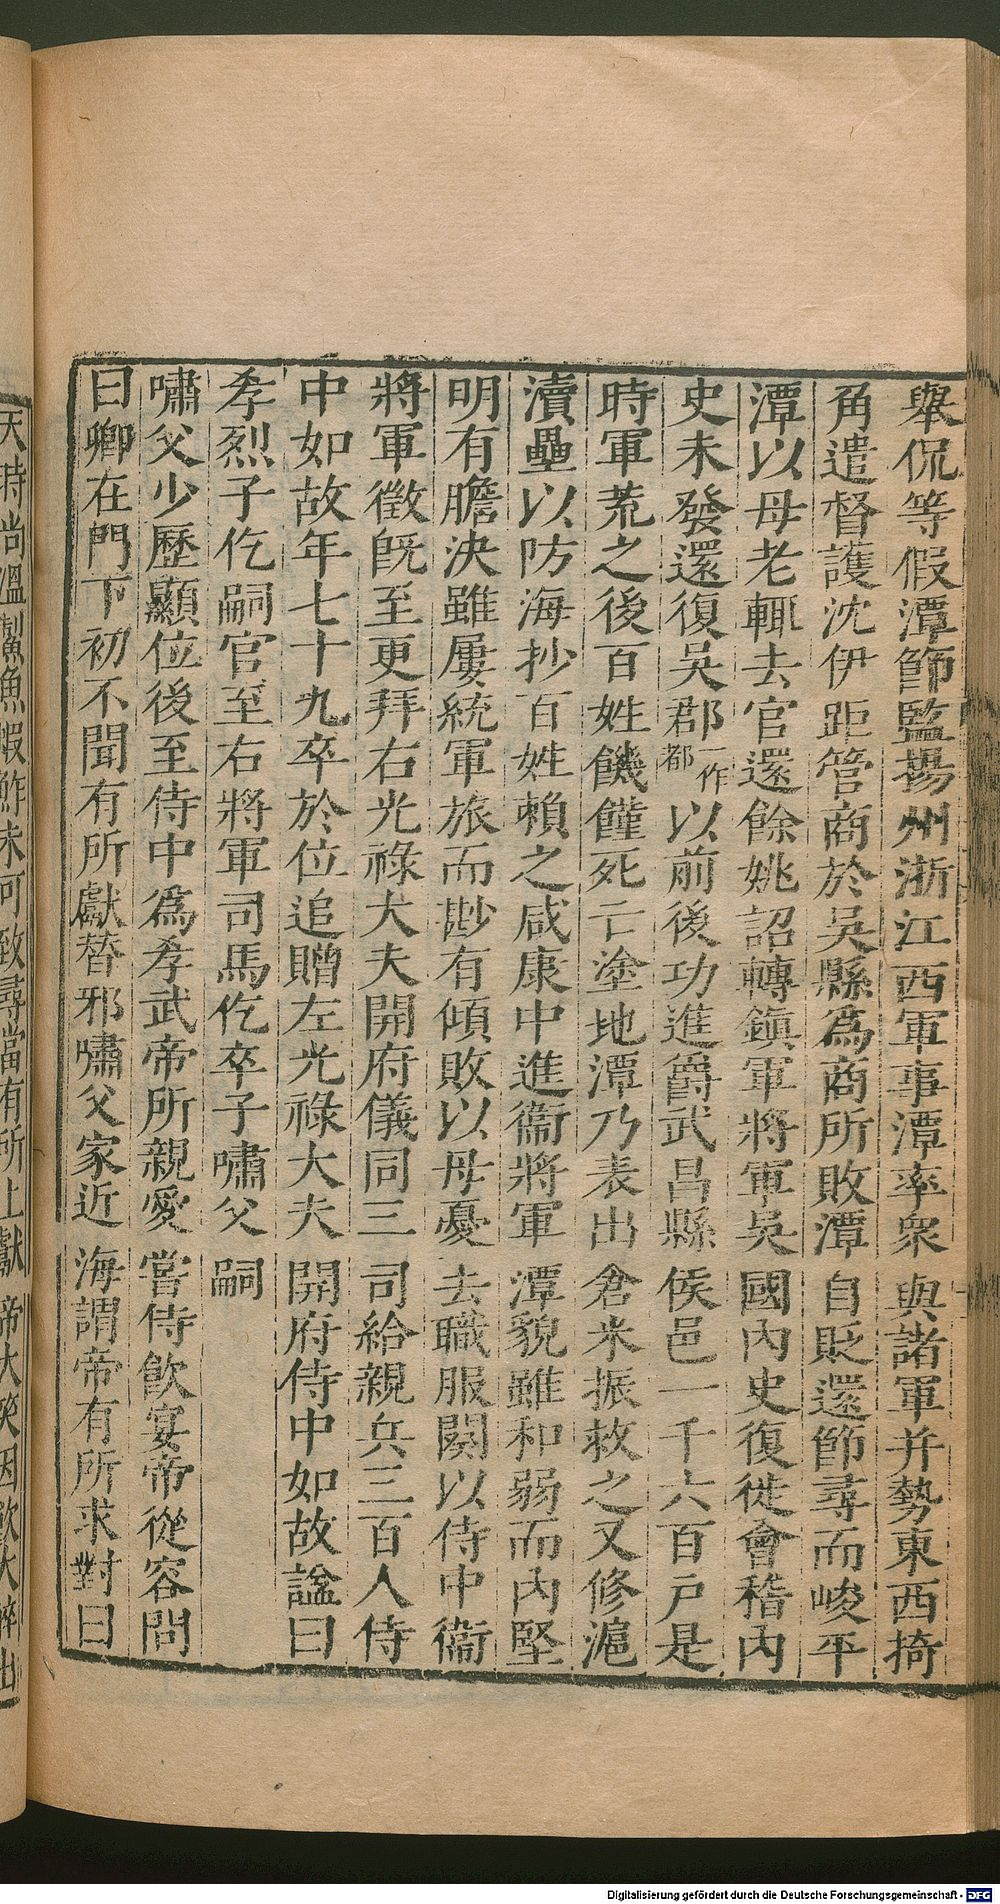 舉侃等假潭節監揚州浙江西軍事潭率衆與諸軍并勢東西掎
角遣督護沈伊距管商於吳縣爲商所敗潭自貶還節尋而峻平
潭以母老輒去官還餘姚詔轉鎭軍將軍吳國內史復徙會稽內
史未發還復吳郡一作都以前後功進爵武昌縣侯邑一千六百戸是
時軍荒之後百姓饑饉死亡塗地潭乃表出倉米振救之又修滬
瀆壘以防海抄百姓賴之咸康中進衞將軍潭貌雖和弱而內堅
明有膽決雖屢統軍旅而尠有傾敗以母憂去職服闋以侍中衞
將軍徵旣至更拜右光祿大夫開府儀同三司給親兵三百人侍
中如故年七十九卒於位追贈左光祿大夫開府侍中如故諡曰
孝烈子仡嗣官至右將軍司馬仡卒子嘯父嗣
嘯父少歷顯位後至侍中爲孝武帝所親愛嘗侍飮宴帝從容問
曰卿在門下初不聞有所獻替邪嘯父家近海謂帝有所求對曰
天時尚溫䱥魚蝦鮓未可致尋當有所上獻帝大笑因飮大醉出
Digitalisierung gefördert durch die Deutsche Forschungsgemeinschaft - DFG